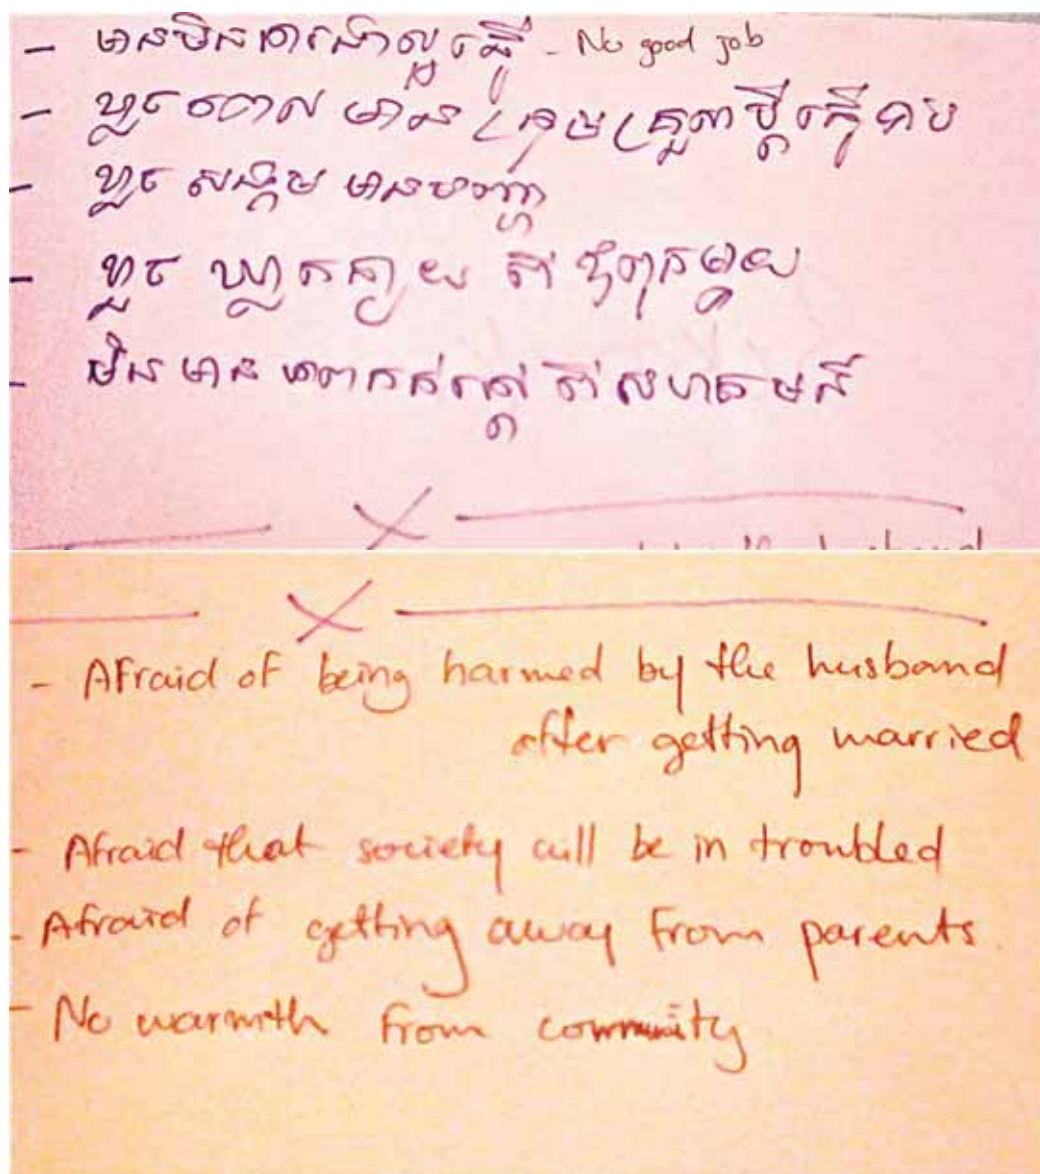 - មានមិនការងាល្អធ្វើ - No good job
- ខ្លច ពេល មាន គ្រួសារ ប្ដី
- ខ្លច សង្គម មានបញ្ហា
- ខ្លច ឃ្លាតឆ្ងាយ ពី ឪពុកម្ដាយ
- មិន មាន ភាពកក់ក្ដៅ ពី សហគមន៍
- Afraid of being harmed by the husband
after getting married
- Afraid that society will be in troubled
- Afraid of getting away from parents.
- No warmth from community